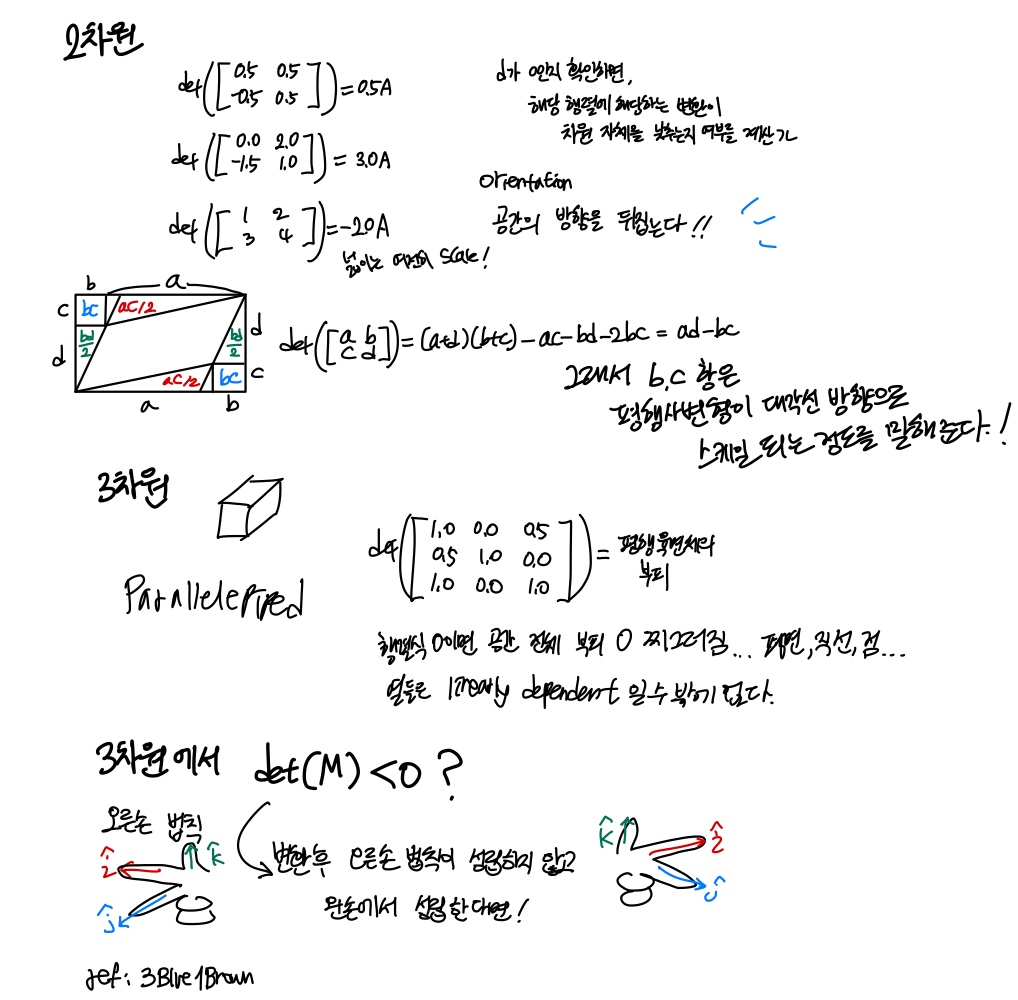 2차원
det([0.5 0.5
-0.5 0.5]) = 0.5A
det([0.0 2.0
-1.5 1.0]) = 3.0A
det([1 2
3 4]) = -2.0A
넓이는 여전히 scale!
d가 0인지 확인하면,
해당 행렬에 해당하는 변환이
차원 자체를 낮추는지 여부를 계산가
Orientation
공간의 방향을 뒤집는다!!
b a
c bc ac/2
d bd/2 bd/2 d
ac/2 bc c
a b
det([a b
c d]) = (a+d)(b+c) - ac - bd - 2bc = ad - bc
그래서 b, c 항은
평행사변형이 대각선 방향으로
스케일 되는 정도를 말해준다.!
3차원
Parallelepiped
det([1.0 0.0 0.5
0.5 1.0 0.0
1.0 0.0 1.0]) = 평행육면체의
부피
행렬식 0이면 공간 전체 부피 0 찌그러짐... 평면, 직선, 점...
열들은 linearly dependent 일수 밖에 없다.
3차원에서 det(M) < 0 ?
오른손 법칙
î ĵ k̂
변환후 오른손 법칙이 성립하지 않고
왼손에서 성립한다면!
k̂ î ĵ
ref: 3Blue1Brown